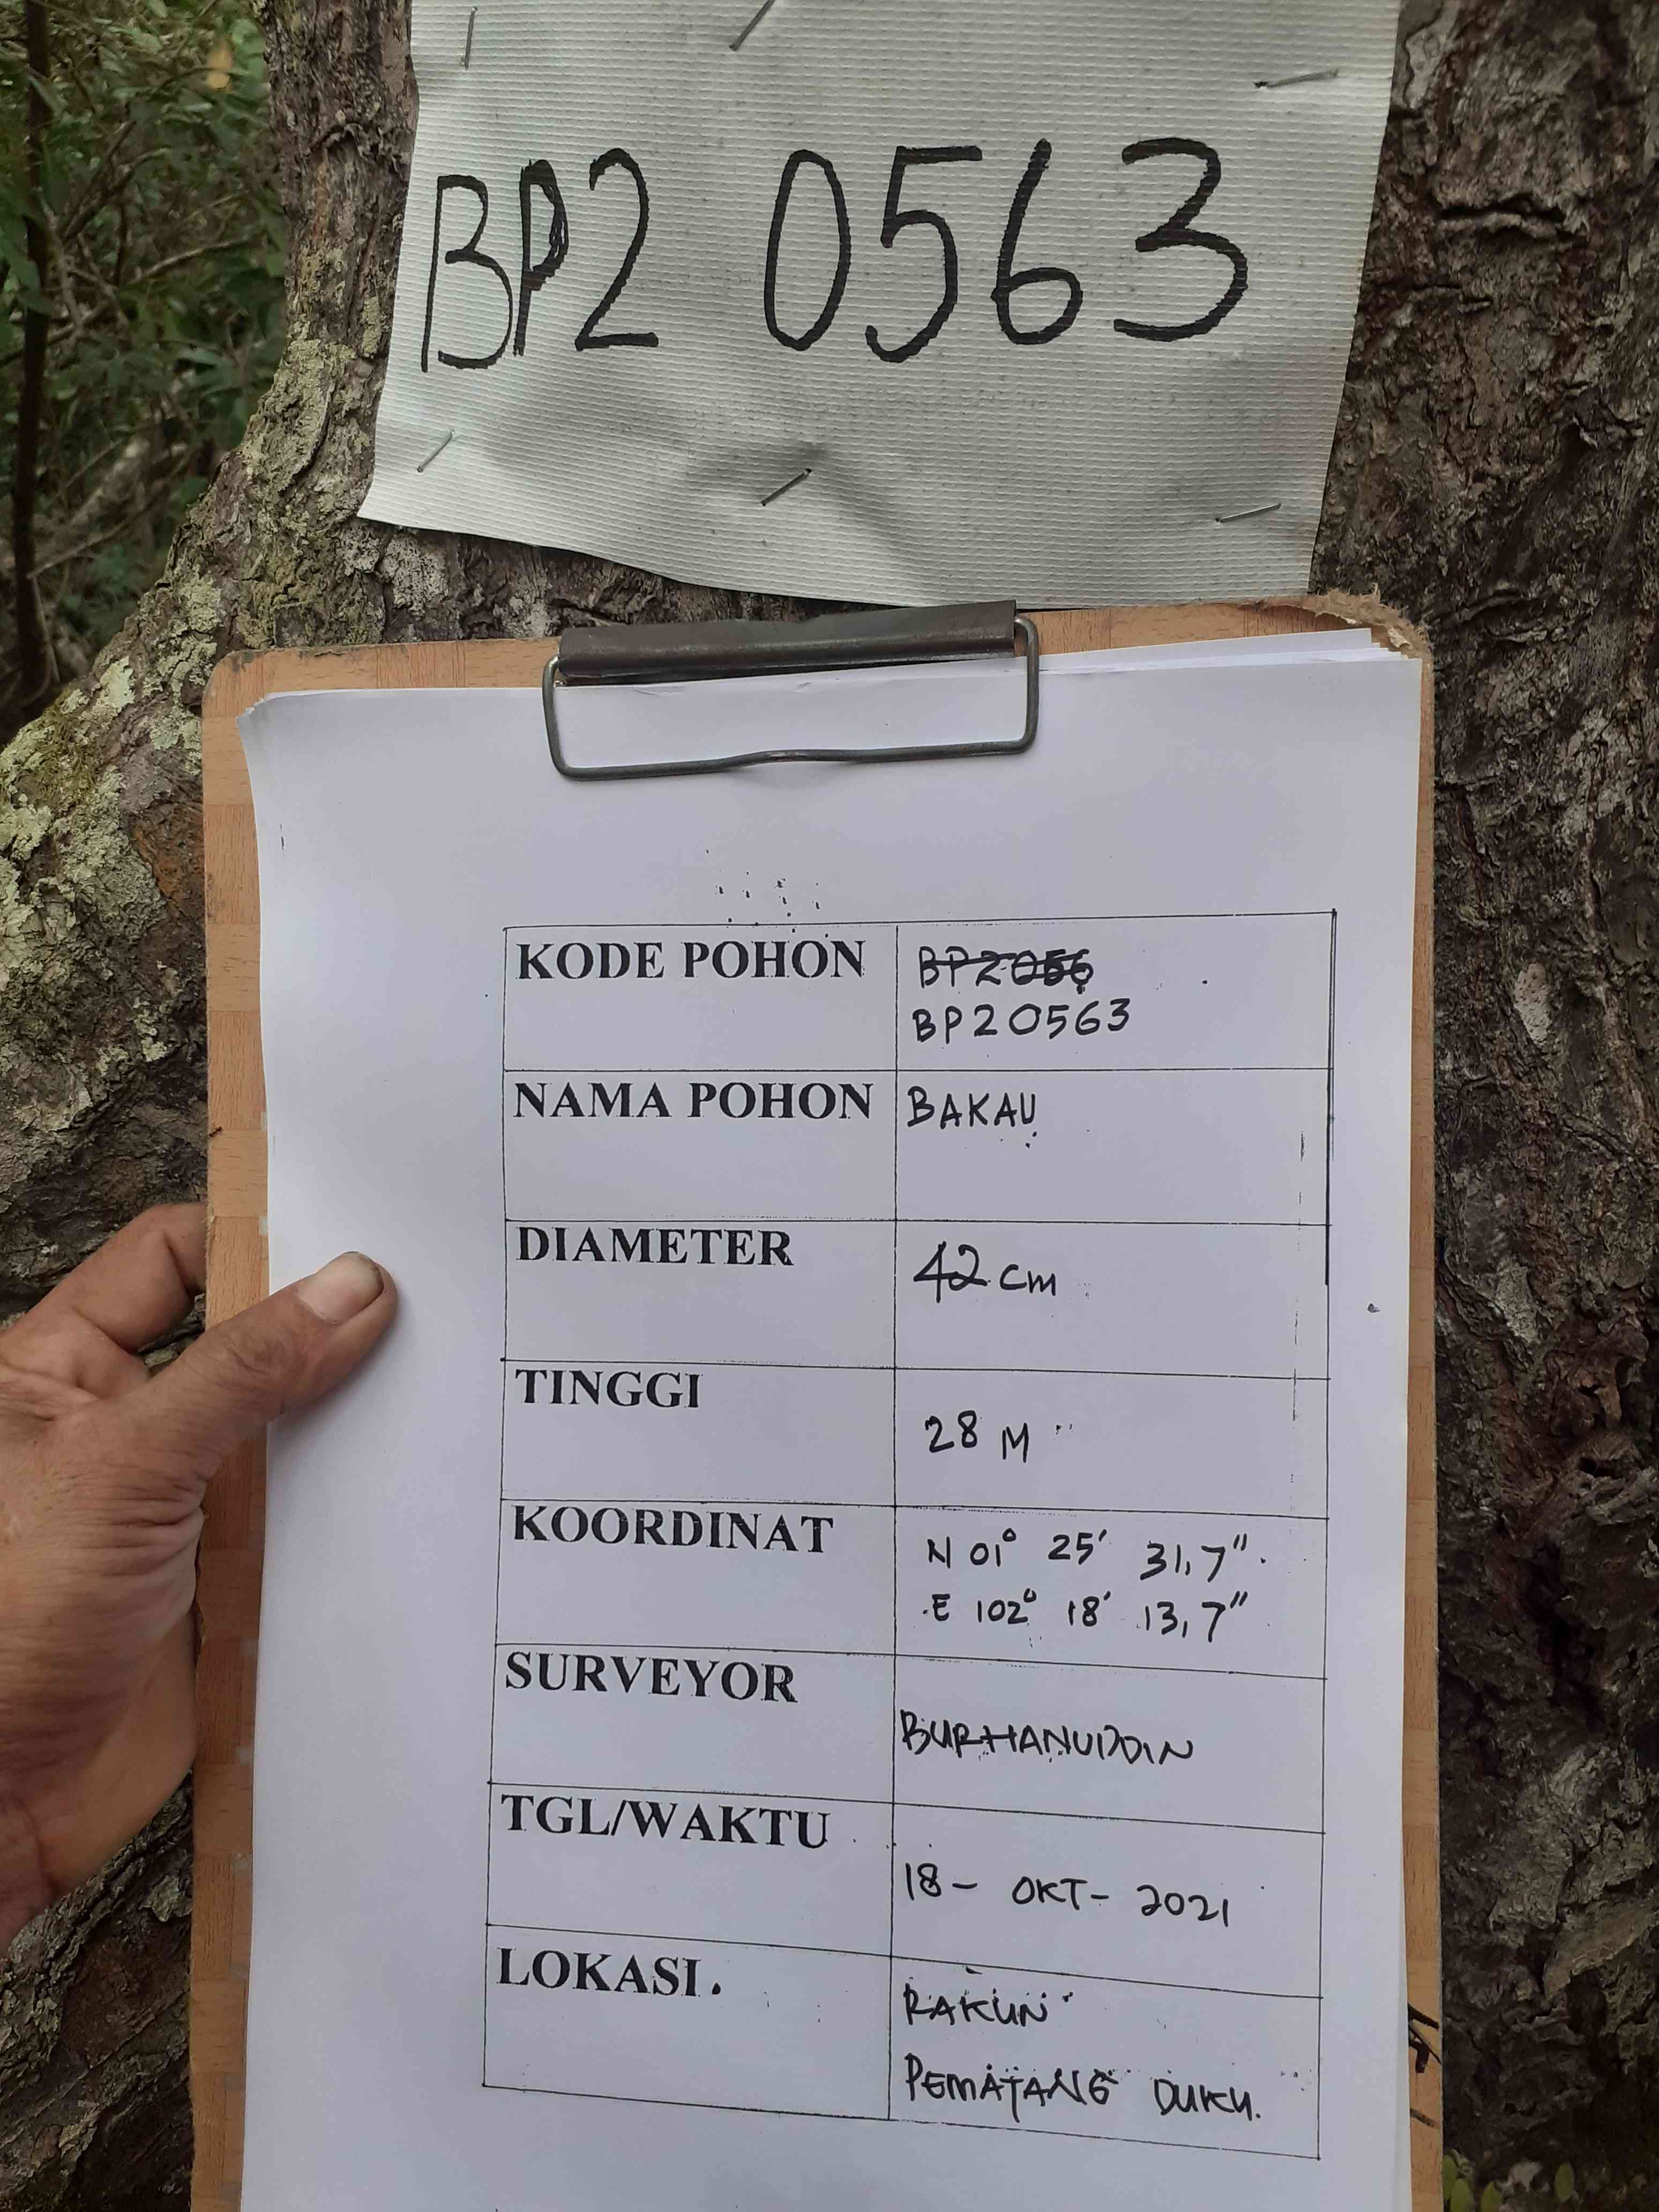 BP2 0563
KODE POHON
BP2056
BP20563
NAMA POHON
BAKAU
DIAMETER
42 cm
TINGGI
28 M
KOORDINAT
N 01° 25' 31,7"
E 102° 18' 13,7"
SURVEYOR
BURHANUDDIN
TGL/WAKTU
18 - OKT - 2021
LOKASI.
RAKUN
PEMATANG DUKU.